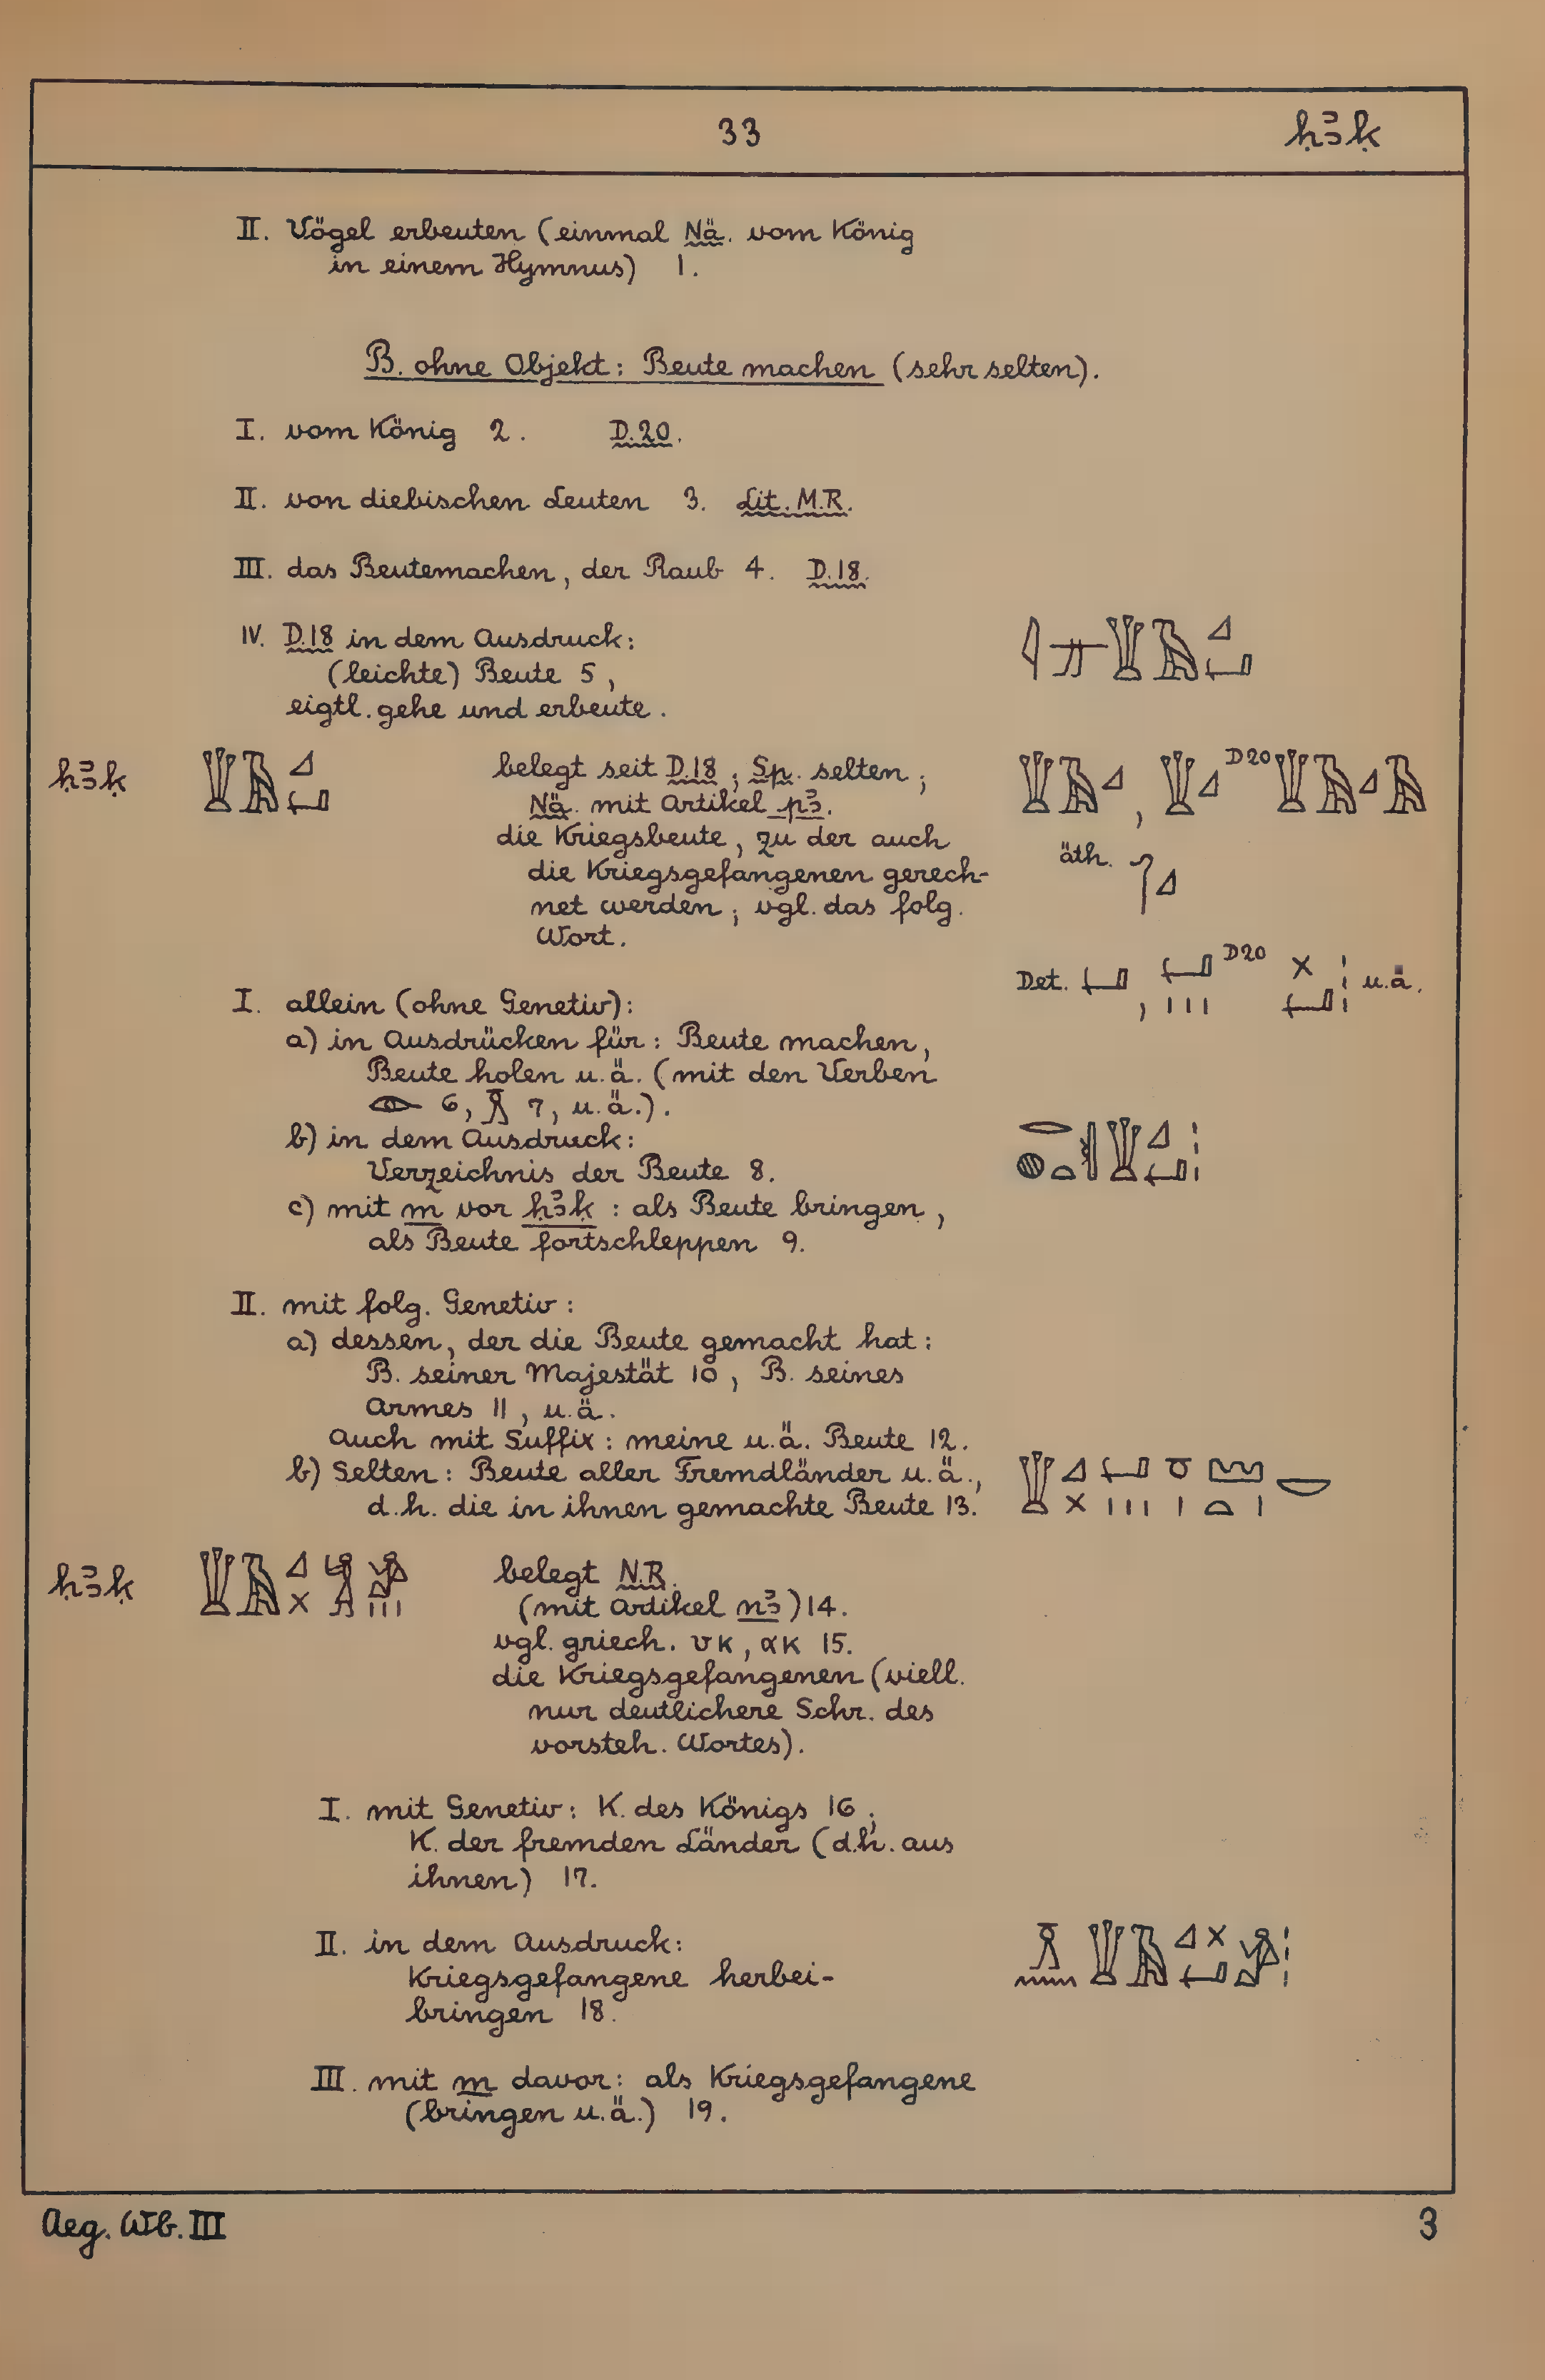 33 ḥꜣḳ
II. Vögel erbeuten (einmal Nä. vom König
in einem Hymnus) 1.
B. ohne Objekt: Beute machen (sehr selten).
I. vom König 2. D.20.
II. von diebischen Leuten 3. Lit. M.R.
III. das Beutemachen, der Raub 4. D.18.
IV. D.18 in dem Ausdruck:
(leichte) Beute 5,
eigtl. gehe und erbeute.
ḥꜣḳ belegt seit D.18; Sp. selten; D20
Nä. mit Artikel pꜣ.
die Kriegsbeute, zu der auch
die Kriegsgefangenen gerech-
net werden; vgl. das folg.
Wort.
äth.
Det. , D20 u.ä.
I. allein (ohne Genetiv):
a) in Ausdrücken für: Beute machen,
Beute holen u.ä. (mit den Verben
6, 7, u.ä.).
b) in dem Ausdruck:
Verzeichnis der Beute 8.
c) mit m vor ḥꜣḳ: als Beute bringen,
als Beute fortschleppen 9.
II. mit folg. Genetiv:
a) dessen, der die Beute gemacht hat:
B. seiner Majestät 10, B. seines
Armes 11, u.ä.
Auch mit Suffix: meine u.ä. Beute 12.
b) Selten: Beute aller Fremdländer u.ä.,
d.h. die in ihnen gemachte Beute 13.
ḥꜣḳ belegt N.R.
(mit Artikel nꜣ) 14.
vgl. griech. υκ, ακ 15.
die Kriegsgefangenen (viell.
nur deutlichere Schr. des
vorsteh. Wortes).
I. mit Genetiv: K. des Königs 16;
K. der fremden Länder (d.h. aus
ihnen) 17.
II. in dem Ausdruck:
Kriegsgefangene herbei-
bringen 18.
III. mit m davor: als Kriegsgefangene
(bringen u.ä.) 19.
Aeg. Wb. III 3